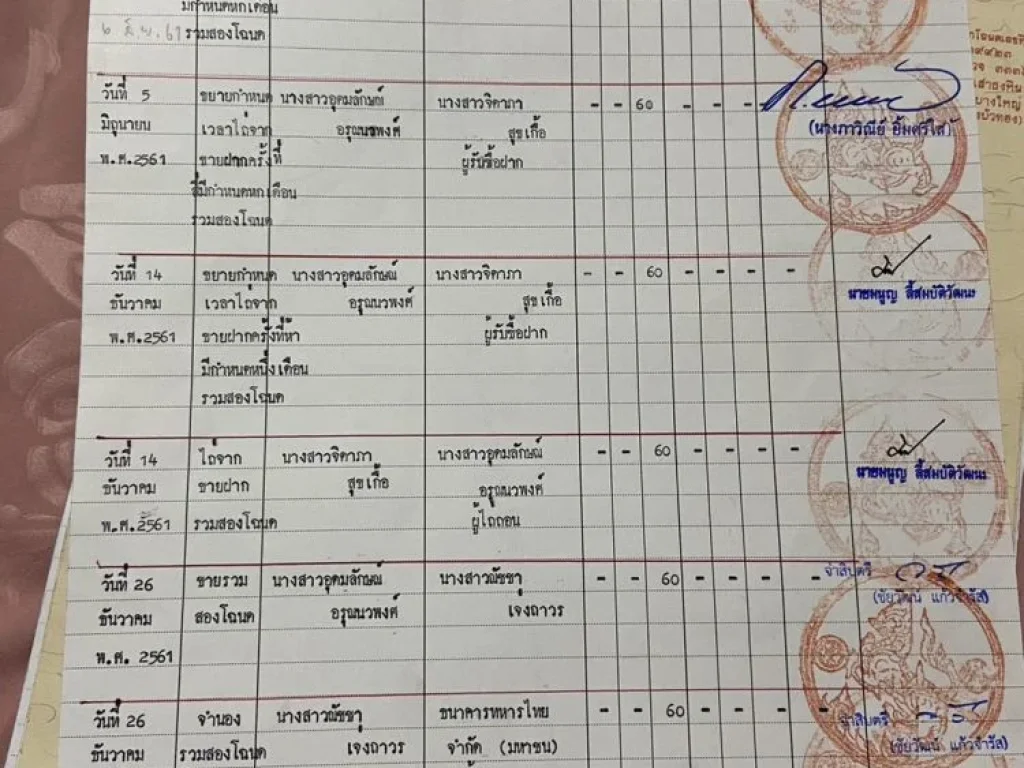 มีกำหนดหกเดือน
๖ มิ.ย. 61 รวมสองโฉนด
วันที่ 5 ขยายกำหนด นางสาวอุดมลักษณ์ นางสาวจิดาภา - - 60 - - - -
มิถุนายน เวลาไถ่จาก อรุณนวพงศ์ สุขเกื้อ (นางภาวิณีย์ อิ้มศรีใส)
พ.ศ.2561 ขายฝากครั้งที่ ผู้รับซื้อฝาก
สี่มีกำหนดหกเดือน
รวมสองโฉนด
วันที่ 14 ขยายกำหนด นางสาวอุดมลักษณ์ นางสาวจิดาภา - - 60 - - - -
ธันวาคม เวลาไถ่จาก อรุณนวพงศ์ สุขเกื้อ นายหนูญ ลี้สมบัติวัฒนะ
พ.ศ.2561 ขายฝากครั้งที่ห้า ผู้รับซื้อฝาก
มีกำหนดหนึ่งเดือน
รวมสองโฉนด
วันที่ 14 ไถ่จาก นางสาวจิดาภา นางสาวอุดมลักษณ์ - - 60 - - - -
ธันวาคม ขายฝาก สุขเกื้อ อรุณนวพงศ์ นายหนูญ ลี้สมบัติวัฒนะ
พ.ศ.2561 รวมสองโฉนด ผู้ไถ่ถอน
วันที่ 26 ขายรวม นางสาวอุดมลักษณ์ นางสาวณัชชา - - 60 - - - - จ่าสิบตรี
ธันวาคม สองโฉนด อรุณนวพงศ์ เจงถาวร (ชัยวัฒน์ แก้วจำรัส)
พ.ศ. 2561
วันที่ 26 จำนอง นางสาวณัชชา ธนาคารทหารไทย - - 60 - - - - จ่าสิบตรี
ธันวาคม รวมสองโฉนด เจงถาวร จำกัด (มหาชน) (ชัยวัฒน์ แก้วจำรัส)